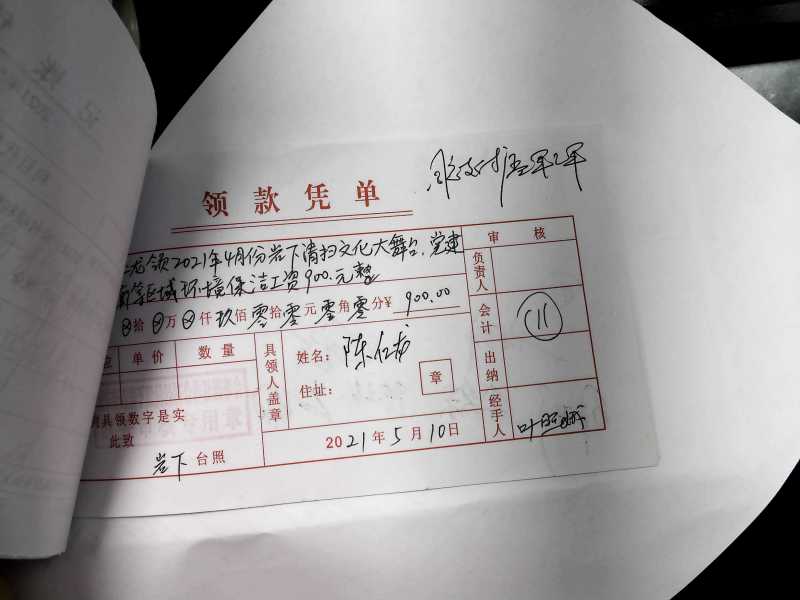 领款凭单
龙领2021年4月份岩下清扫文化大舞台、党建
等区域环境保洁工资900.元整
⊗拾⊗万⊗仟玖佰零拾零元零角零分¥ 900.00
单价 数量
具领人盖章
姓名：陈仁龙
住址：
章
具领数字是实
此致
岩下 台照
2021年5月10日
审核
负责人
会计 (11)
出纳
经手人